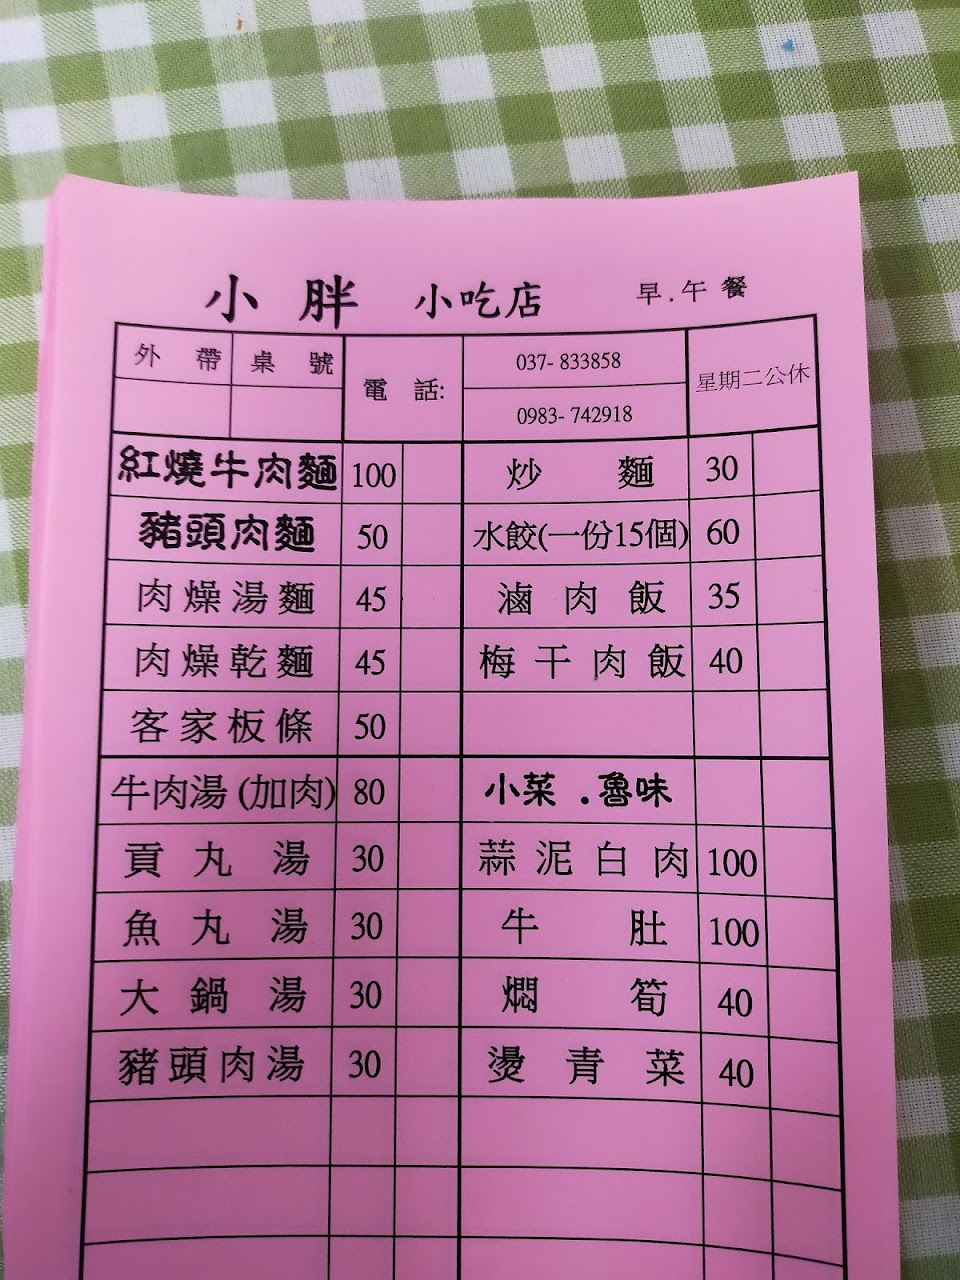 小胖 小吃店 早.午餐
外帶 桌號 電話: 037- 833858 星期二公休
0983- 742918
紅燒牛肉麵 100 炒麵 30
豬頭肉麵 50 水餃(一份15個) 60
肉燥湯麵 45 滷肉飯 35
肉燥乾麵 45 梅干肉飯 40
客家板條 50
牛肉湯(加肉) 80 小菜.魯味
貢丸湯 30 蒜泥白肉 100
魚丸湯 30 牛肚 100
大鍋湯 30 燜筍 40
豬頭肉湯 30 燙青菜 40